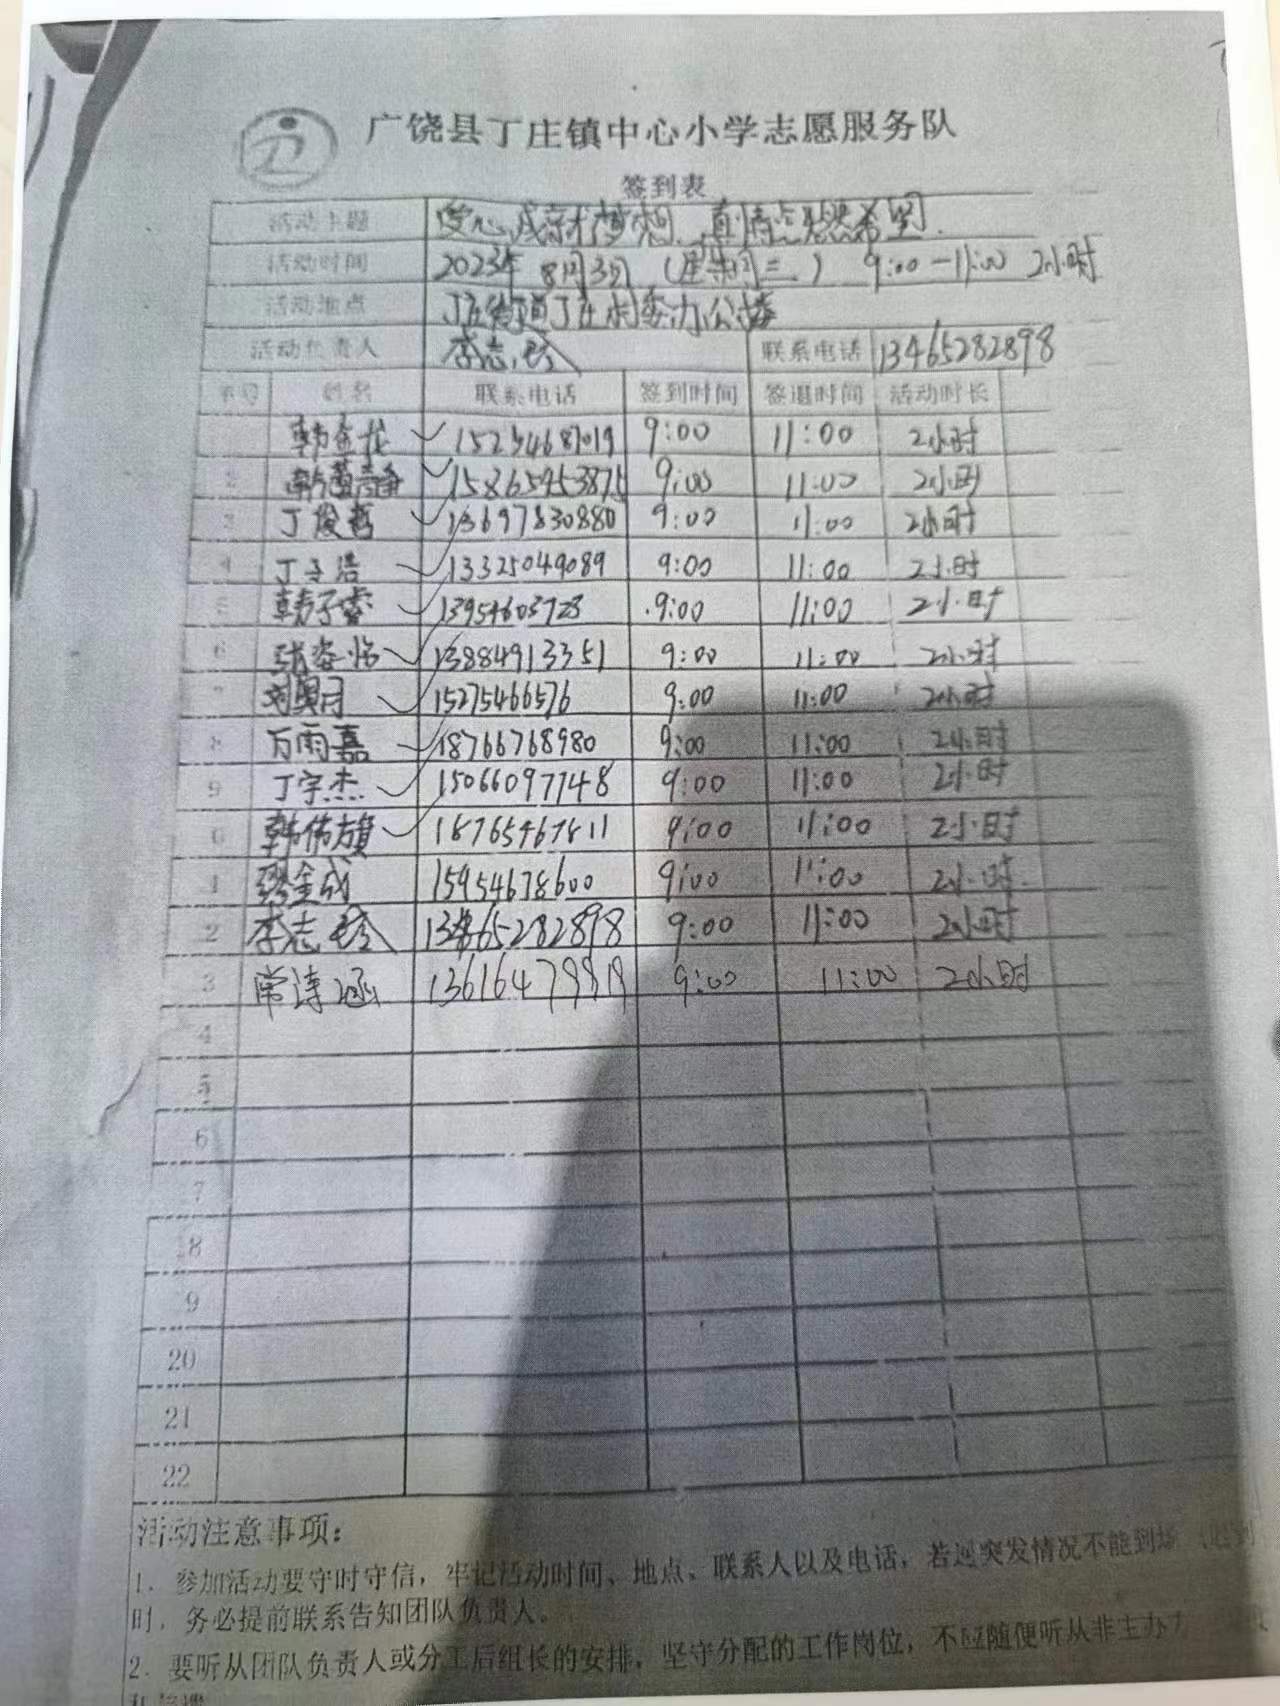 广饶县丁庄镇中心小学志愿服务队
签到表
活动主题 爱心成就梦想,真情点燃希望.
活动时间 2023年 8月3日 (星期二) 9:00-11:00 2小时
活动地点 丁庄街道丁庄村委办公楼
活动负责人 李志玲 联系电话 13465282898
序号 姓名 联系电话 签到时间 签退时间 活动时长
韩金龙 15234687019 9:00 11:00 2小时
2 15865953875 9:00 11:00 2小时
3 丁俊哲 13697830880 9:00 11:00 2小时
4 丁子浩 13325049089 9:00 11:00 2小时
5 韩子睿 13954603728 9:00 11:00 2小时
6 张姿怡 13884913351 9:00 11:00 2小时
7 刘奥月 15275466576 9:00 11:00 2小时
8 万雨嘉 18766768980 9:00 11:00 2小时
9 丁宇杰 15066097748 9:00 11:00 2小时
0 韩伟旗 18765467811 9:00 11:00 2小时
1 金成 15954678600 9:00 11:00 2小时
2 李志玲 13465282898 9:00 11:00 2小时
3 常诗涵 13616479819 9:00 11:00 2小时
4
5
6
7
8
9
20
21
22
活动注意事项:
1. 参加活动要守时守信,牢记活动时间、地点、联系人以及电话,若遇突发情况不能到场
时,务必提前联系告知团队负责人。
2. 要听从团队负责人或分工后组长的安排,坚守分配的工作岗位,不应随便听从非主办